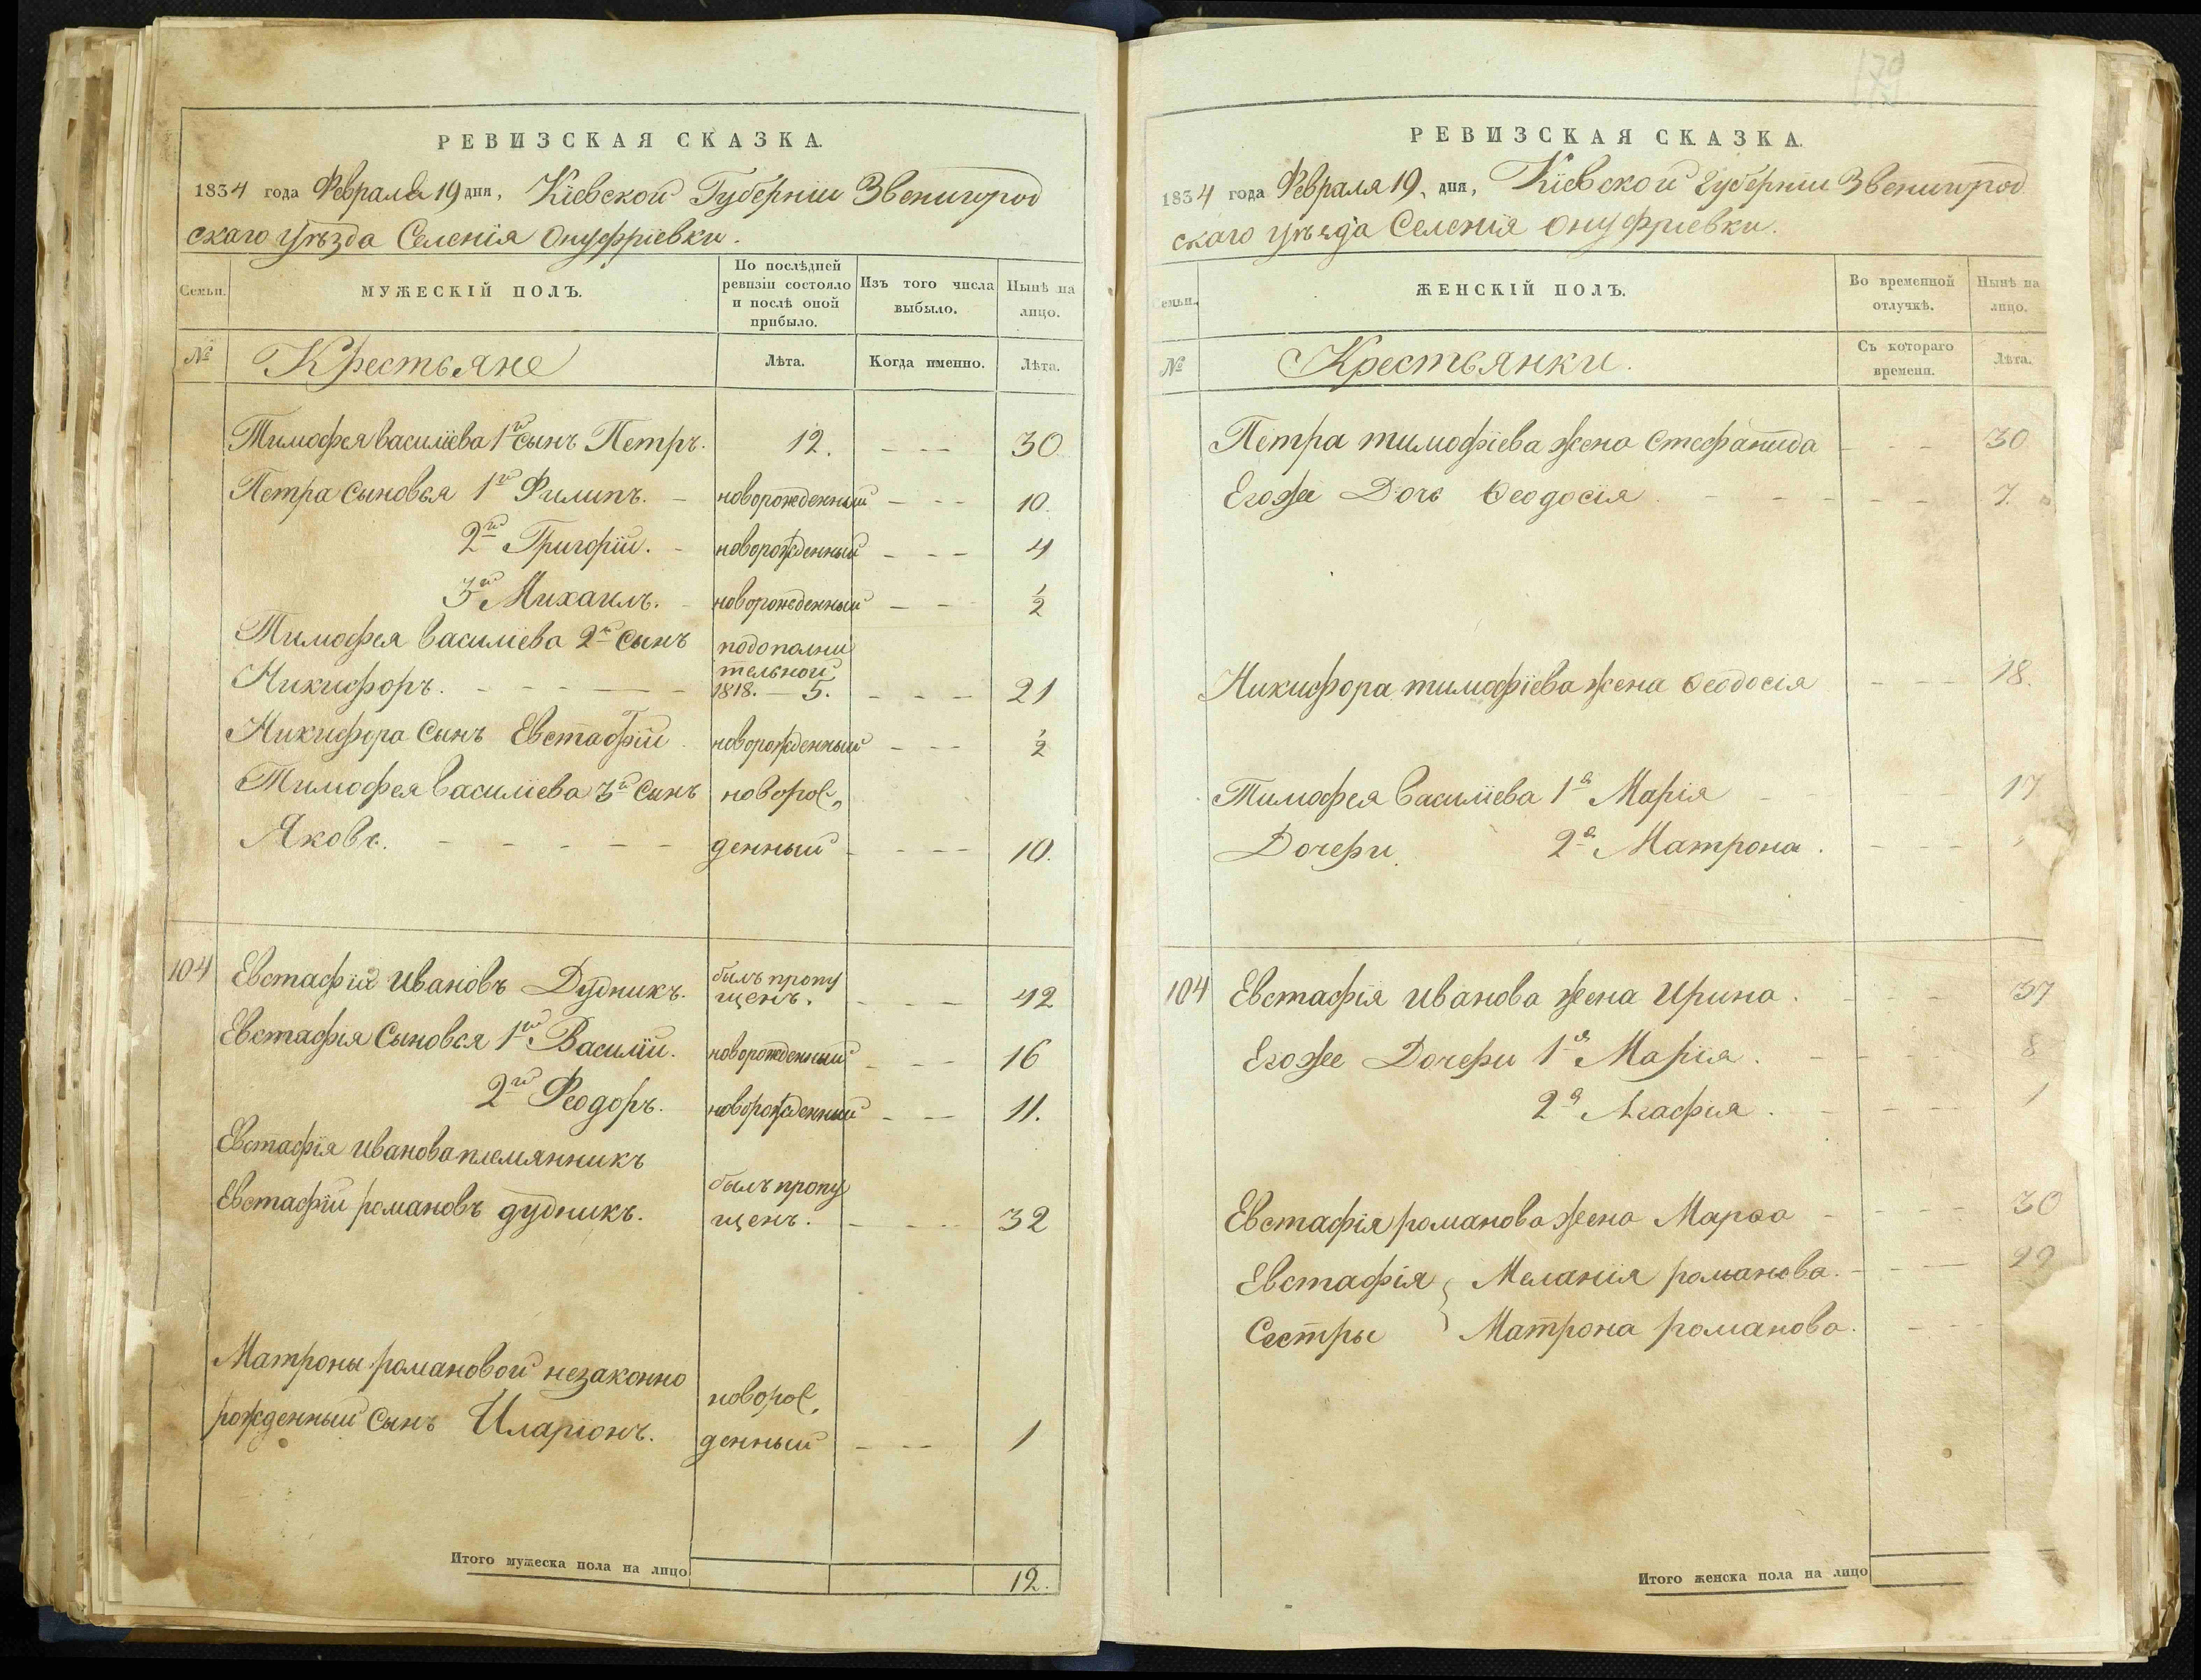 РЕВИЗСКАЯ СКАЗКА.
1834 года Февраля 19 дня, Кіевской Губерніи Звенигород
скаго уѣзда Селенія Онуфріевки.
Семьи.
МУЖЕСКІЙ ПОЛЪ.
По послѣдней
ревизіи состояло
и послѣ оной
прибыло.
Изъ того числа
выбыло.
Нынѣ на
лицо.
№ Крестьяне Лѣта. Когда именно. Лѣта.
Тимофея василіева 1й сынъ Петръ. 12. - - - 30
Петра сыновья 1й Филипъ. - новорожденный - - - 10.
2й Григорій. - новорожденный - - - 4
3й Михаилъ. - новорожденный - - - ½
Тимофея василіева 2й сынъ подополни
тельной
Никифоръ. - - - - - 1818. - 5. - - - - 21
Никифора сынъ Евстафій. новорожденный - - - ½
Тимофея василіева 3й сынъ новорож,
Яковъ. - - - - - - денный - - - - 10.
104 Евстафій ивановъ Дудникъ. былъ пропу
щенъ. - - - - 42
Евстафія сыновья 1й Василій. новорожденный - - - 16
2й Феодоръ. новорожденный - - - 11.
Евстафія иванова племянникъ
Евстафій романовъ дудникъ. былъ пропу
щенъ. - - - - 32
Матроны романовой незаконно
рожденный сынъ Иларіонъ. новорож,
денный - - - 1
Итого мужеска пола на лицо 12.
179
РЕВИЗСКАЯ СКАЗКА.
1834 года Февраля 19, дня, Кіевской губерніи Звенигород
скаго уѣзда Селенія Онуфріевки.
Семьи.
ЖЕНСКІЙ ПОЛЪ.
Во временной
отлучкѣ.
Нынѣ на
лицо.
№ Крестьянки. Съ котораго
времени. Лѣта.
Петра тимофіева жена Стефанида - - - 30
Егоже Дочь Ѳеодосія. - - - - - - 7.
Никифора тимофіева жена Ѳеодосія - - - 18.
Тимофея василіева 1я Марія - - - - - 17
Дочери. 2я Матрона. - - -
104 Евстафія иванова жена Ирина. - - - 37
Егоже Дочери 1я Марія. - - - - 8
2я Агафія. - - - - 1
Евстафія романова жена Марѳа - - - - 30
Евстафія { Меланія романова. - - - 22
Сестры Матрона романова. - - -
Итого женска пола на лицо